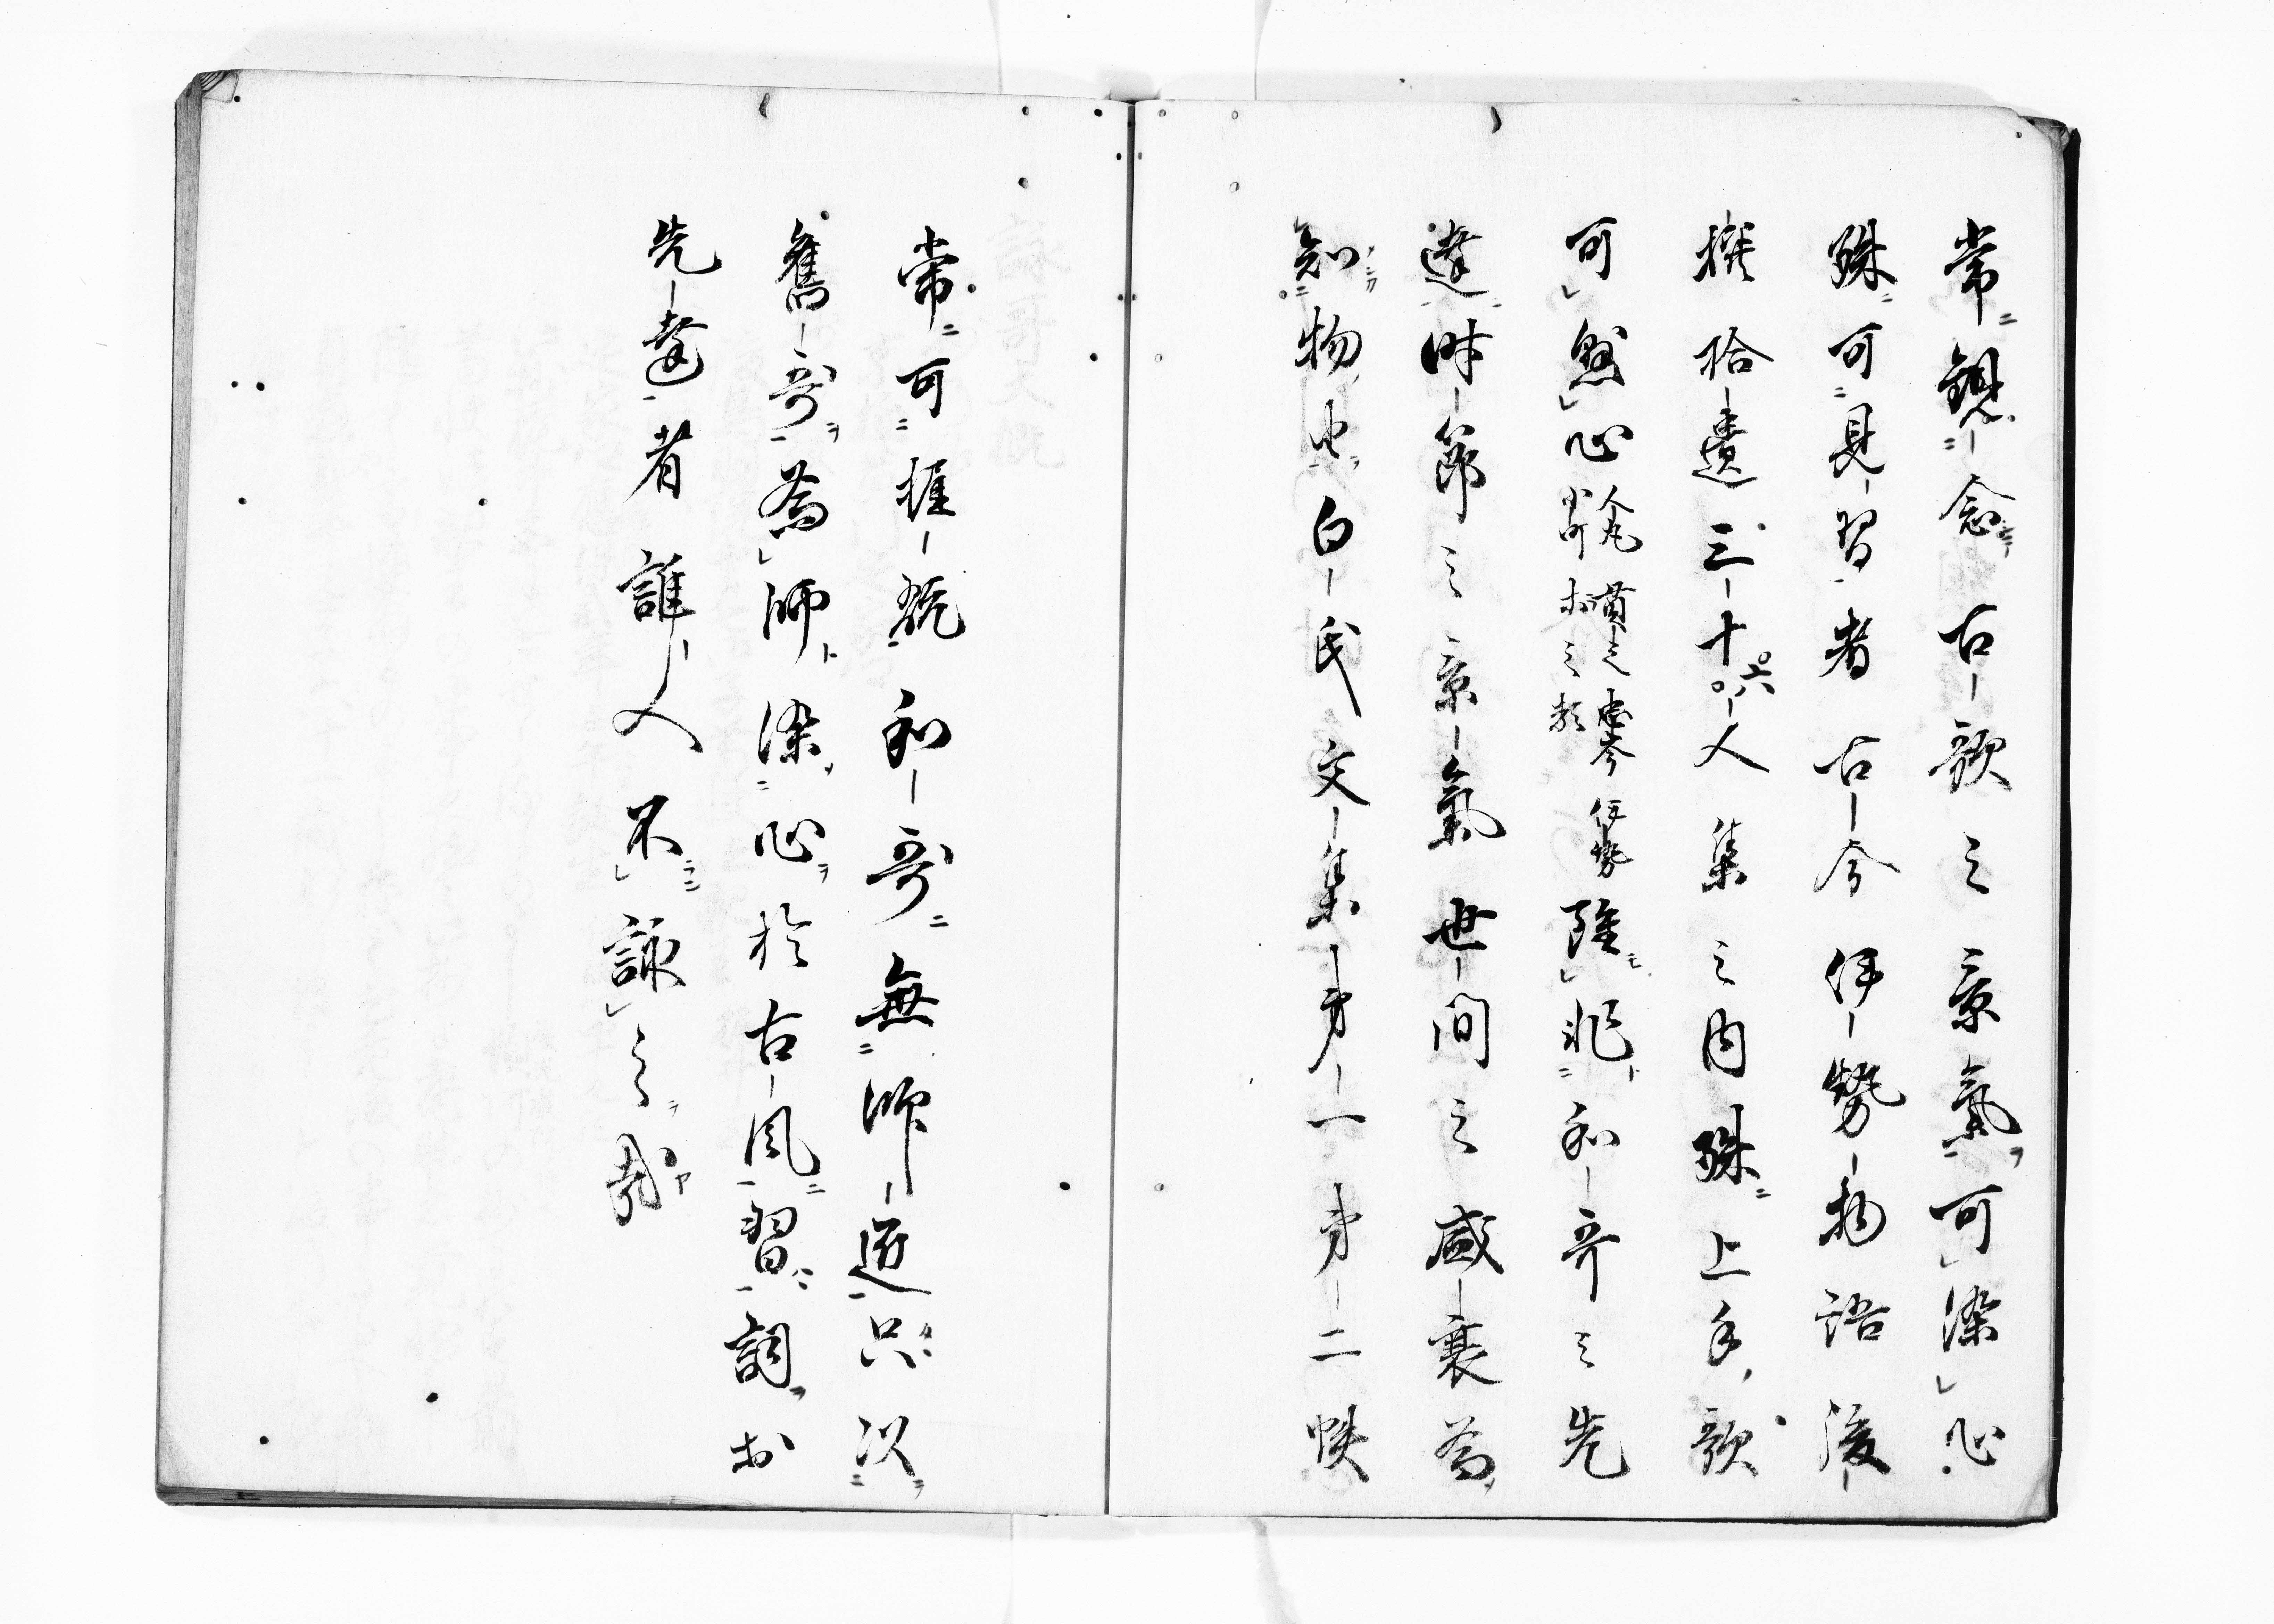 常観念古歌之景氣可染心
殊可見習者古今伊勢物語後
撰拾遺三十六人集之内殊上手歌
可懸心人丸 貫之 忠岑 伊勢 小町 等之類雖非和哥之先
達時節之景氣世間之盛衰為
知物由白氏文集第一第二帙
常可握翫和哥無師匠只以
舊哥為師染心於古風習詞於
先達者誰人不詠之哉